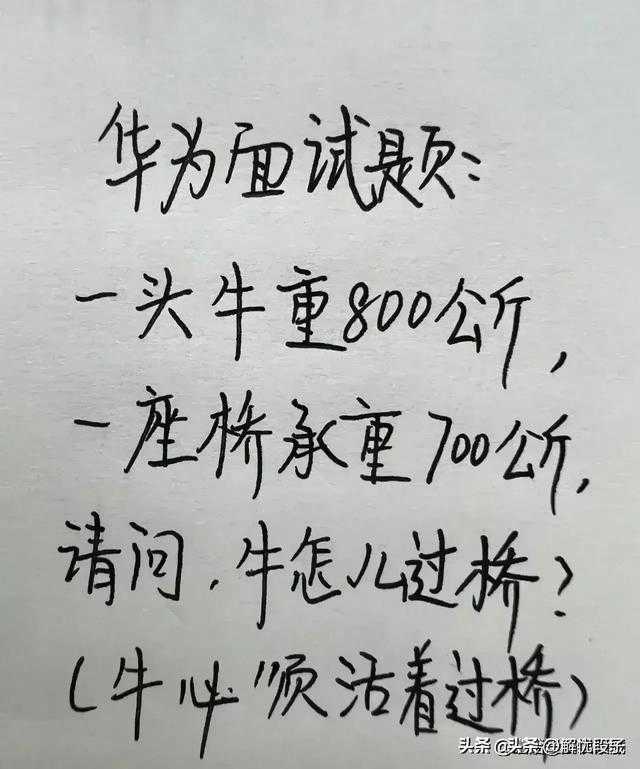 华为面试题:
一头牛重800公斤,
一座桥承重700公斤,
请问,牛怎么过桥?
(牛必须活着过桥)
头条 @头条 @解忧段子